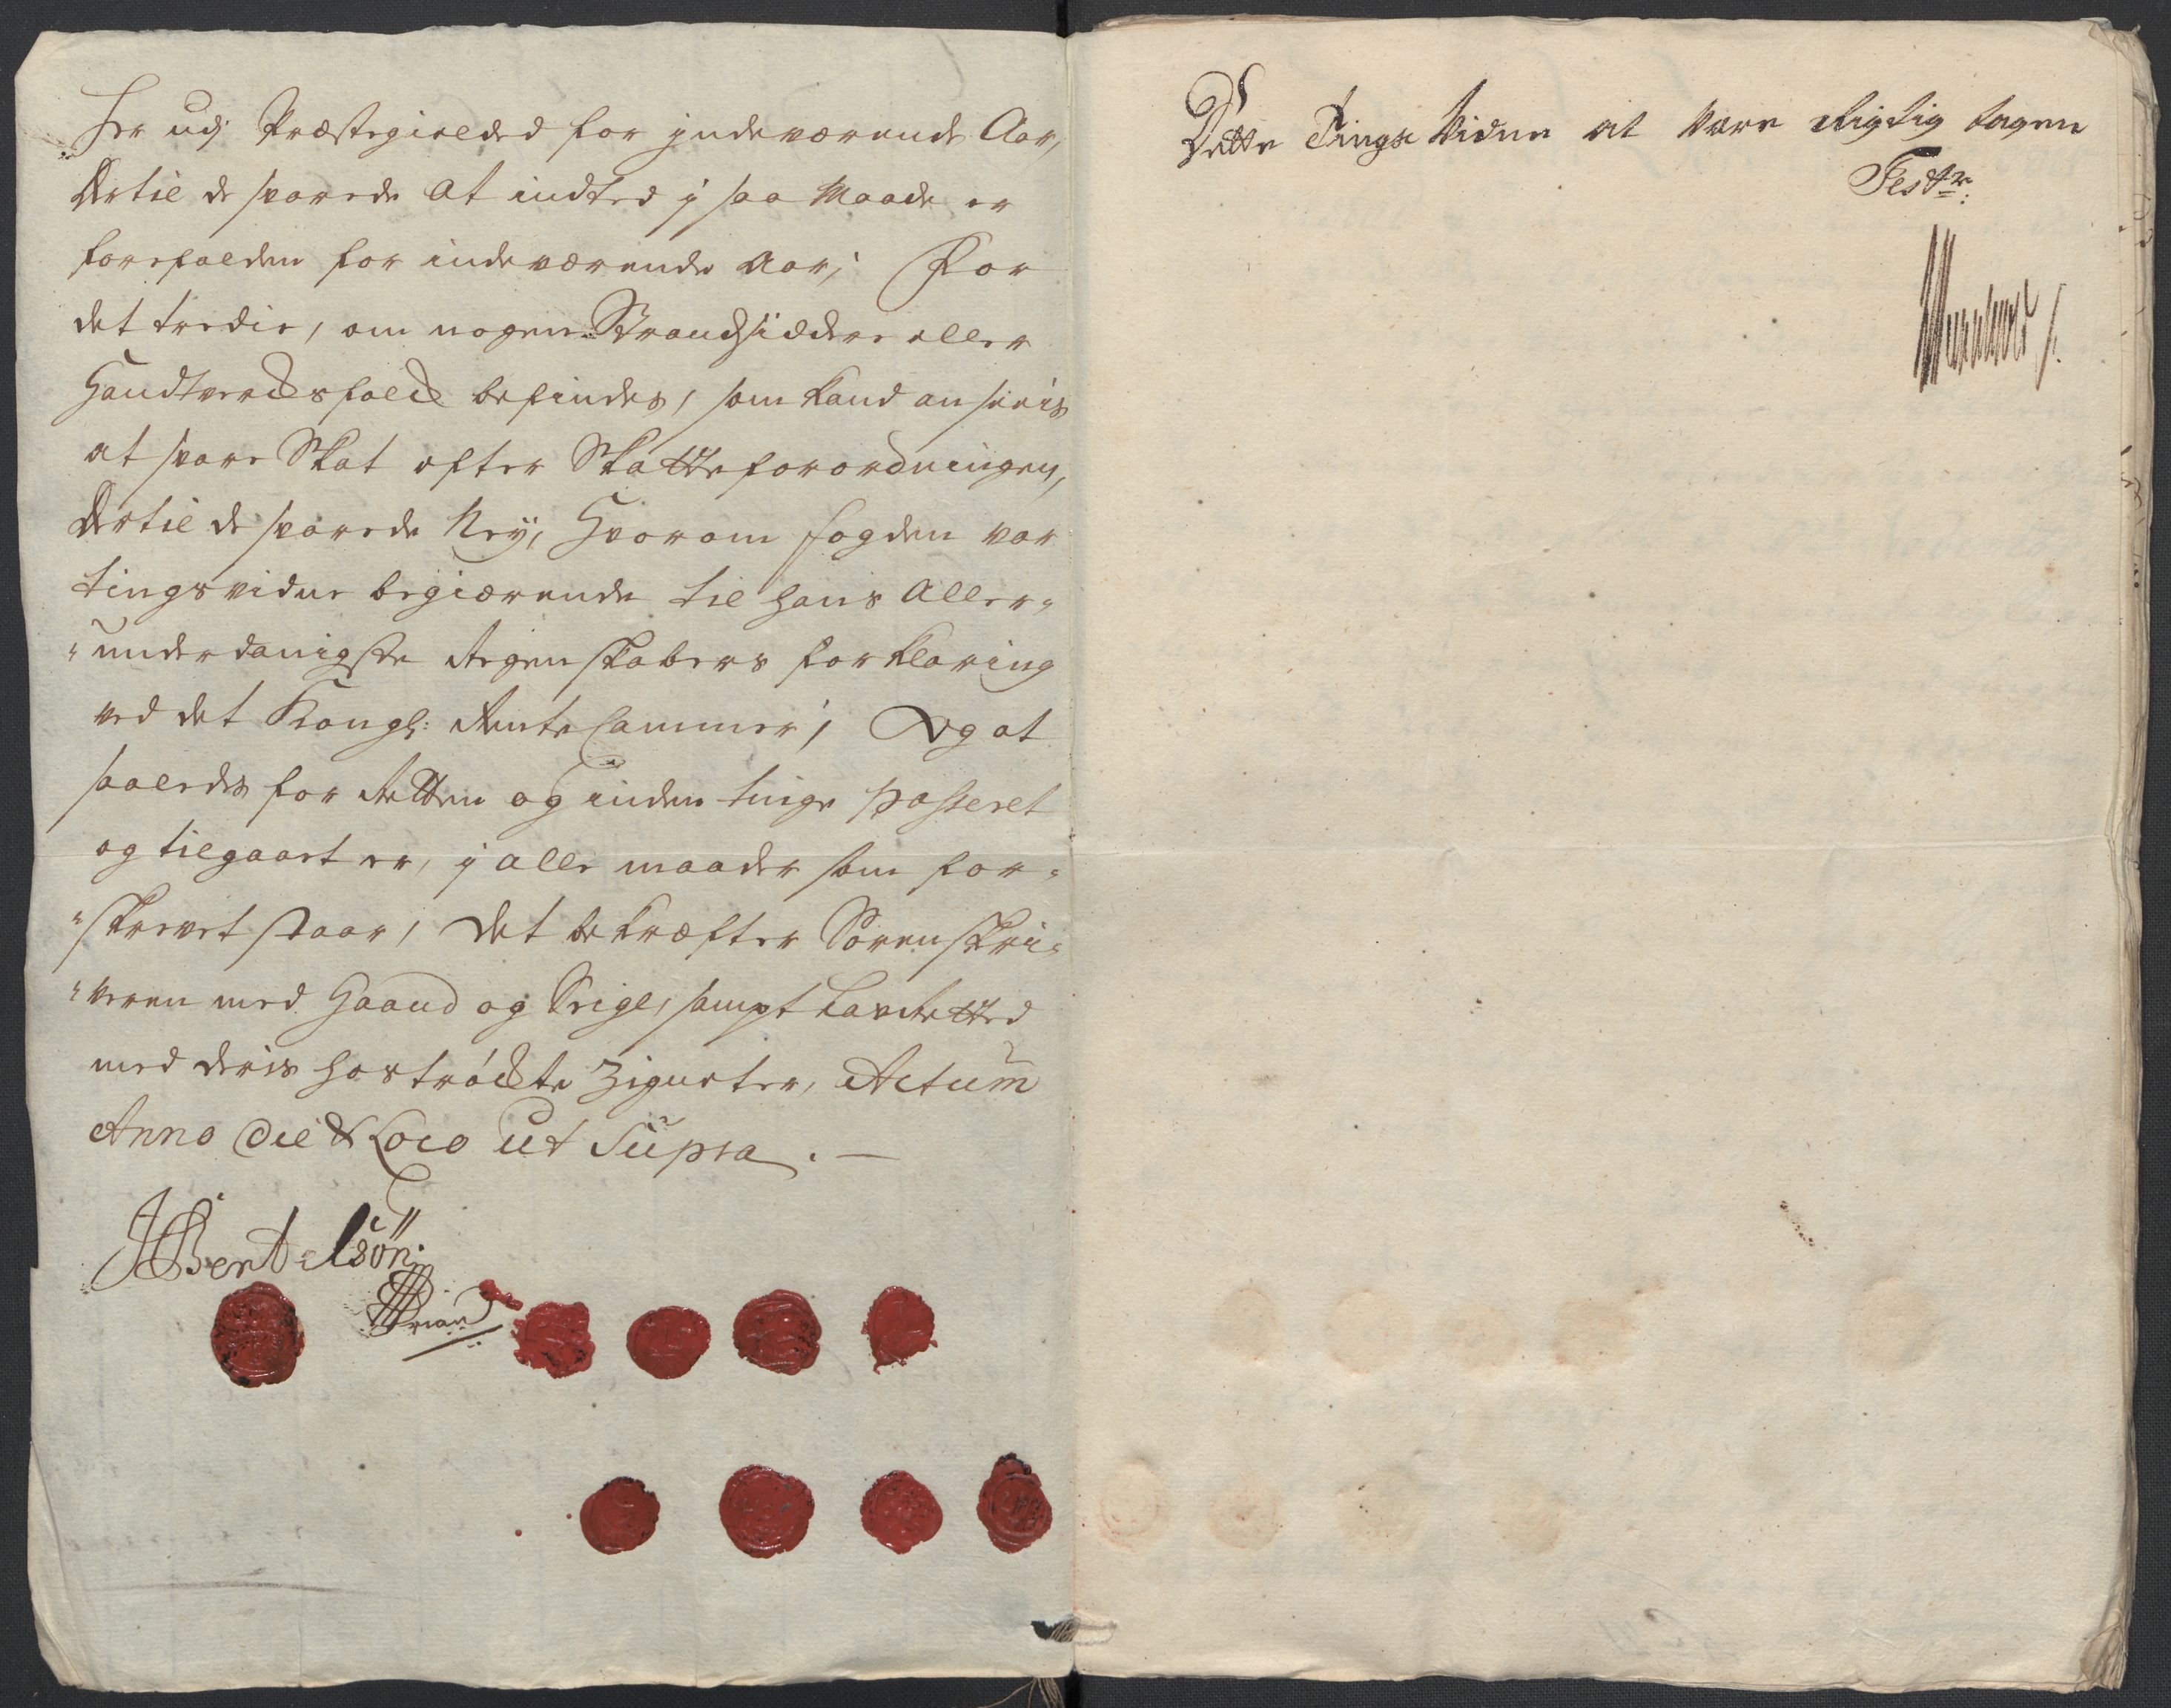 her udj Præstegielded for jndeværende Aar,
Dertil de svarede at indted j saa Maade er
forefalden for indeværende Aar; For
det tredie, om nogen Strandsiddere eller
Handtvercksfolck befindes, som kand ansees
at svare Skat efter Skatteforordningen,
Dertil de svarede Ney, Hvorom fogden var
tingsvidne begiærende til hans aller-
underdanigste Regenskabers forklaring
ved det Kongl: Rente Cammer, Og at
saaledes for Retten og inden tinge passeret
og tilgaaet er, j alle maader som for-
skrevet staar, det bekræfter Sorenskri-
veren med Haand og Seigl, sampt Lavretted
med deris hostrøckte Zigneter, Actum
Anno Die & Loco ut Supra.
JBertelsön
Dette Tings Vidne at være Rigtig tagen
Test: